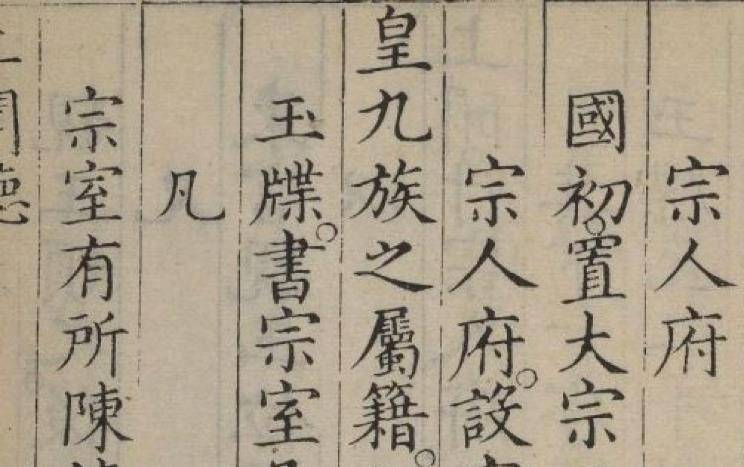 宗人府
國初。置大宗
宗人府。設
皇九族之屬籍。
玉牒。書宗室
凡
宗室有所陳
聞